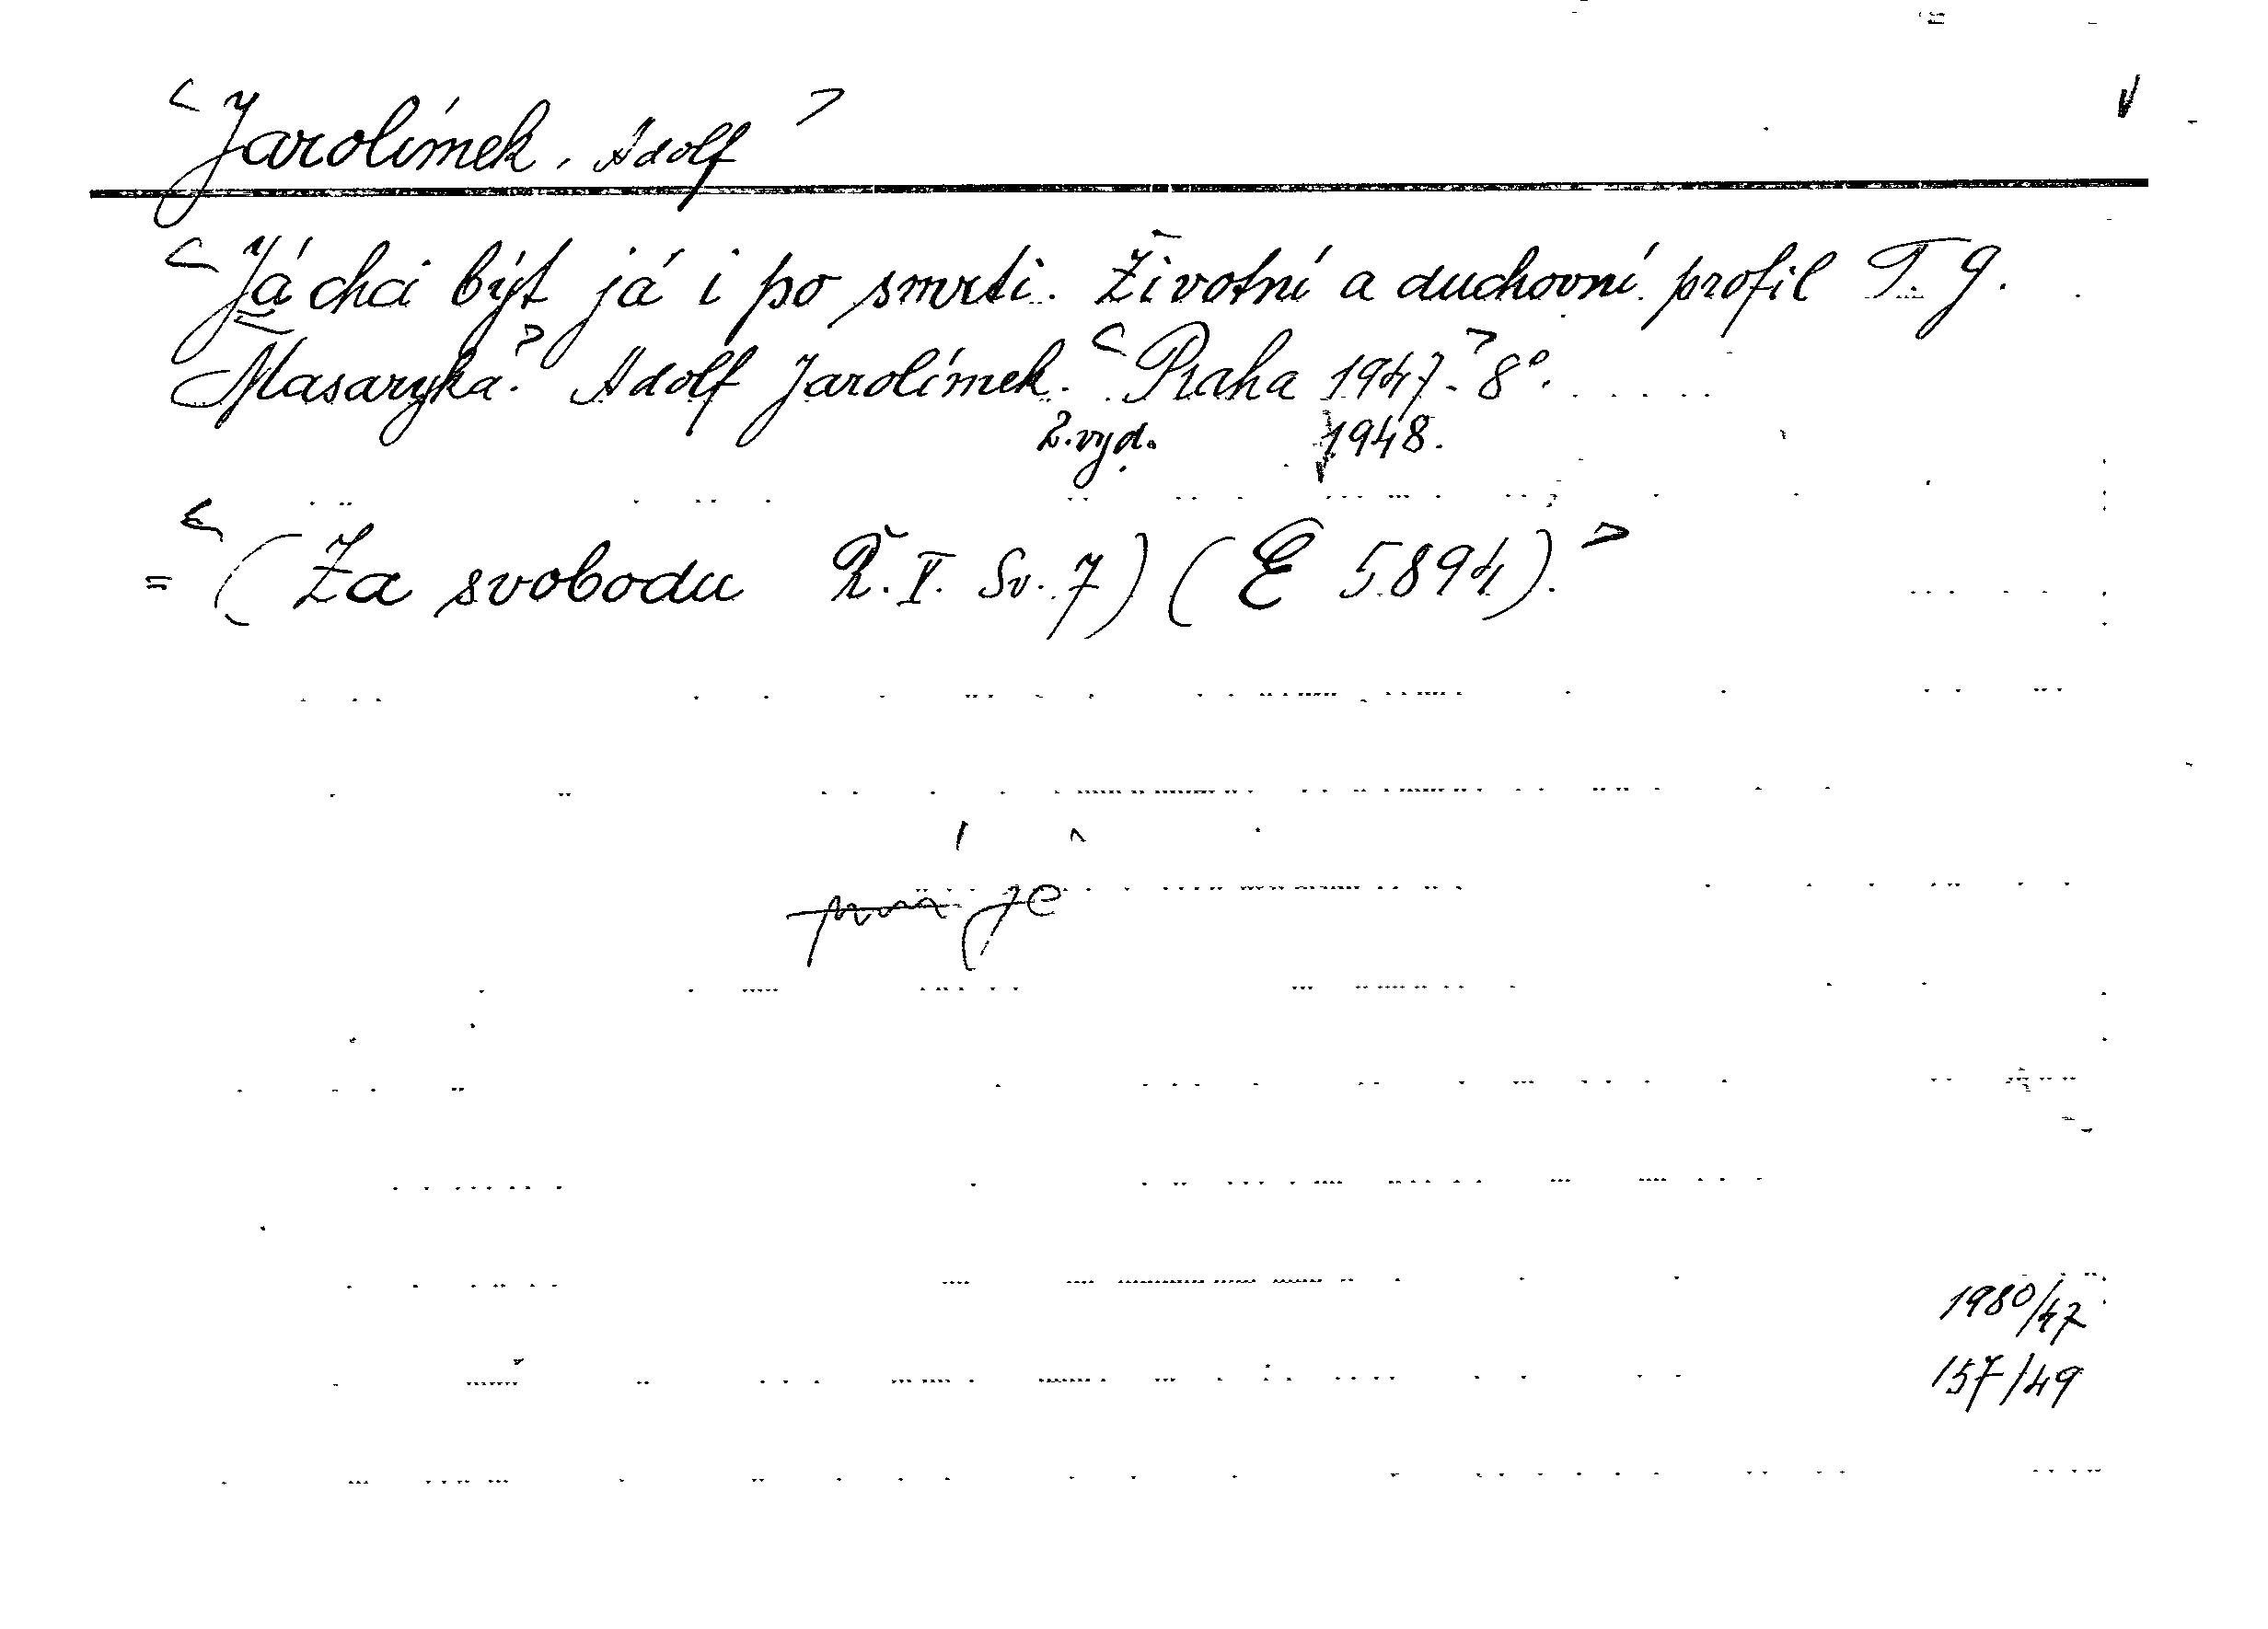 <Jarolímek, Adolf>
<Já chci být já i po smrti. Životní a duchovní profil T. G.
Masaryka.> Adolf Jarolímek. <Praha 1947.> 8°.
2. vyd. 1948.
= <(Za svobodu Ř. V. Sv. 7) (E 5894).>
je
1980/47
157/49